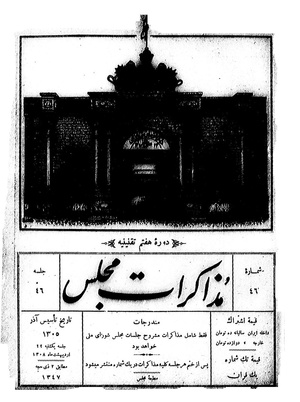 دورهٔ هفتم تقنینیه
شماره
۴۶
مذاکرات مجلس
جلسه
۴۶
قیمت اشتراک
داخله ایران سالیانه ده تومان
خارجه « دوازده تومان
قیمت تک شماره
یک قران
مندرجات
فقط شامل مذاکرات مشروح جلسات مجلس شورای ملی
خواهد بود
پس از ختم هر جلسه کلیه مذاکرات در یک شماره منتشر میشود
مطبعهٔ مجلس
تاریخ تأسیس آذر
۱۳۰۵
جلسه یکشنبه ۲۲
اردیبهشت ماه ۱۳۰۸
مطابق ۲ ذی‌حجه
۱۳۴۷